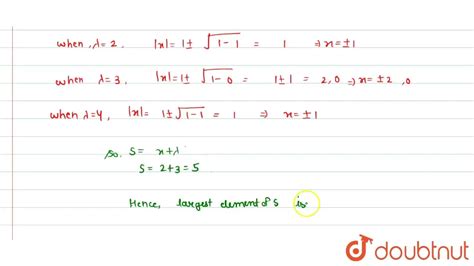 when, λ=2, |x|=1± √1-1 = 1 ⇒ x=±1
when λ=3, |x|=1± √1-0 = 1±1 = 2,0 ⇒ x=±2,0
when λ=4, |x|= 1±√1-1 = 1 ⇒ x=±1
so, S= x+λ
S= 2+3=5
Hence, largest element of S is
doubtnut